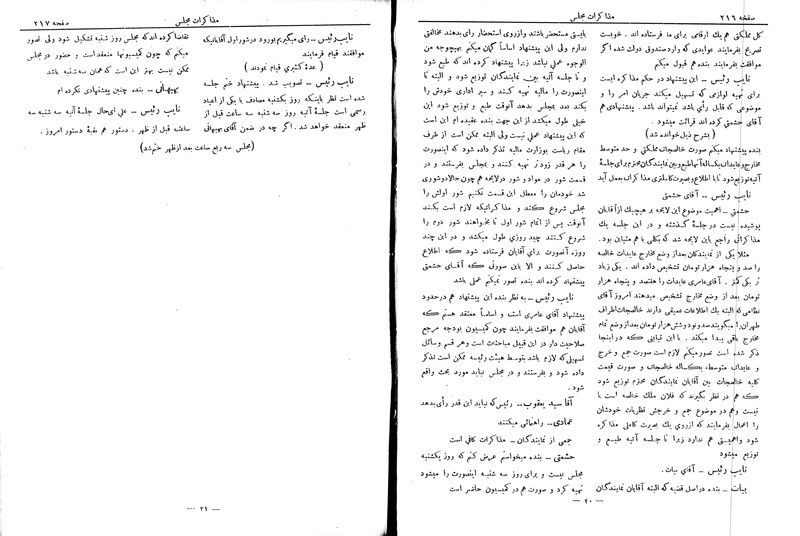 صفحه ۲۱۶
مذاکرات مجلس
کل مملکتی هم یك ارقامی برای ما فرستاده اند . خوبست
تصریح بفرمایند عوایدی که وارد صندوق دولت شده اگر
بفرمایند بنده هم قبول میکنم
نایب رئیس ــ این پیشنهاد در حکم مذاکره است
برای تهیه لوازمی که تسهیل میکند جریان امر را و
موضوعی که قابل رأی باشد نمیتواند باشد . پیشنهادی هم
آقای حشمتی کرده اند قرائت میشود .
(بشرح ذیل خوانده شد)
بنده پیشنهاد میکنم صورت خالصجات مملکتی و حد متوسط
مخارج و عایدات یکساله آنها طبع و بین نمایندگان محترم برای جلسه
آتیه توزیع شود تا با اطلاع و بصیرت کاملتری مذاکرات بعمل آید
نایب رئیس ــ آقای حشمتی
حشمتی ــ اهمیت موضوع این لایحه بر هیچیك از آقایان
پوشیده نیست در جلسه گذشته و در این جلسه یك
مذاکراتی راجع باین لایحه شد که بکلی با هم متباین بود .
مثلا یکی از نمایندگان بعد از وضع مخارج عایدات خالصه
را صد و پنجاه هزار تومان تشخیص داده اند . یکی زیاد
تر یکی کمتر . آقای عامری عایدات را هفتصد و پنجاه هزار
تومان بعد از وضع مخارج تشخیص میدهند امروز آقای
نظامی که البته یك اطلاعات عمیقی دارند خالصجات اطراف
طهران را میگویند صد و نود و شش هزار تومان بعد از وضع تمام
مخارج باقی پیدا میکند . با این تباینی که در اینجا
ذکر شده است تصور میکنم لازم است صورت جمع و خرج
و عایدات متوسطه یکساله خالصجات و صورت قیمت
کلیه خالصجات بین آقایان نمایندگان محترم توزیع شود
که هم در نظر بگیرند که فلان ملك خالصه است یا
نیست وهم در موضوع جمع و خرجش نظریات خودشان
را اعمال بفرمایند که از روی یك بصیرت کاملی مذاکره
شود واهمیتی هم ندارد زیرا تا جلسه آتیه طبع و
توزیع میشود
نایب رئیس ــ آقای بیات .
بیات ــ بنده در اصل قضیه که البته آقایان نمایندگان
بایستی مستحضر باشند و از روی استحضار رأی بدهند مخالفتی
ندارم ولی این پیشنهاد اساساً گمان میکنم بهیچوجه من
الوجوه عملی نباشد زیرا پیشنهاد کرده اند که طبع شود
و تا جلسه آتیه بین نمایندگان توزیع شود و البته تا
اینصورت را مالیه تهیه کنند و سیر اداری خودش را
بکند بعد بمجلس بدهد آنوقت طبع و توزیع شود این
خیلی طول میکشد از این جهت بنده عقیده ام این است
که این پیشنهاد عملی نیست ولی البته ممکن است از طرف
مقام ریاست بوزارت مالیه تذکر داده شود که اینصورت
را هر قدر زودتر تهیه کنند و بمجلس بفرستند و در
قسمت شور در مواد و شور در لایحه هم چون حالا دو شوری
شد خودمان را معطل این قسمت نکنیم شور اولش را
مجلس شروع کند و مذاکراتیکه لازم است بکنند
آنوقت پس از اتمام شور اول تا بخواهند شور دوم را
شروع کنند چند روزی طول میکشد و در این چند
روزه آنصورت برای آقایان فرستاده شود که اطلاع
حاصل کنند و الا باین صورتی که آقای حشمتی
پیشنهاد کرده اند بنده تصور نمیکنم عملی باشد
نایب رئیس ــ به نظر بنده این پیشنهاد هم در حدود
پیشنهاد آقای عامری است و اساساً معتقد هستم که
آقایان هم موافقت بفرمایند چون کمیسیون بودجه مرجع
صلاحیت دار در این قبیل مباحثات است و هر قسم وسائل
تسهیلی که لازم باشد بتوسط هیئت رئیسه ممکن است تذکر
داده شود و بفرستند و در مجلس نباید مورد بحث واقع
شود .
آقا سید یعقوب ــ رئیس که نباید این قدر رأی بدهد
عمادی ــ راهنمائی میکنند
جمعی از نمایندگان ــ مذاکرات کافی است
حشمتی ــ بنده میخواستم عرض کنم که روز یکشنبه
مجلس نیست و برای روز سه شنبه اینصورت را میشود
تهیه کرد و صورت هم در کمیسیون حاضر است
ــ ۲۰ ــ
مذاکرات مجلس
صفحه ۲۱۷
نایب رئیس ــ رای میگیریم بورود در شور اول آقایانیکه
موافقند قیام فرمایند
(عده کثیری قیام نمودند)
نایب رئیس ــ تصویب شد . پیشنهاد ختم جلسه
شده است نظر باینکه روز یکشنبه مصادف با یکی از اعیاد
رسمی است جلسه آتیه روز سه شنبه سه ساعت قبل از
ظهر منعقد خواهد شد . اگر چه در ضمن آقای بهبهانی
تقاضا کرده اند که مجلس روز شنبه تشکیل شود ولی تصور
میکنم که چون کمیسیونها منعقد است و حضور در مجلس
ممکن نیست بهتر این است که همان سه شنبه باشد
بهبهانی ــ بنده چنین پیشنهادی نکرده ام
نایب رئیس ــ علی ای حال جلسه آتیه سه شنبه سه
ساعت قبل از ظهر : دستور هم بقیه دستور امروز .
(مجلس سه ربع ساعت بعد از ظهر ختم شد)
ــ ۲۱ ــ